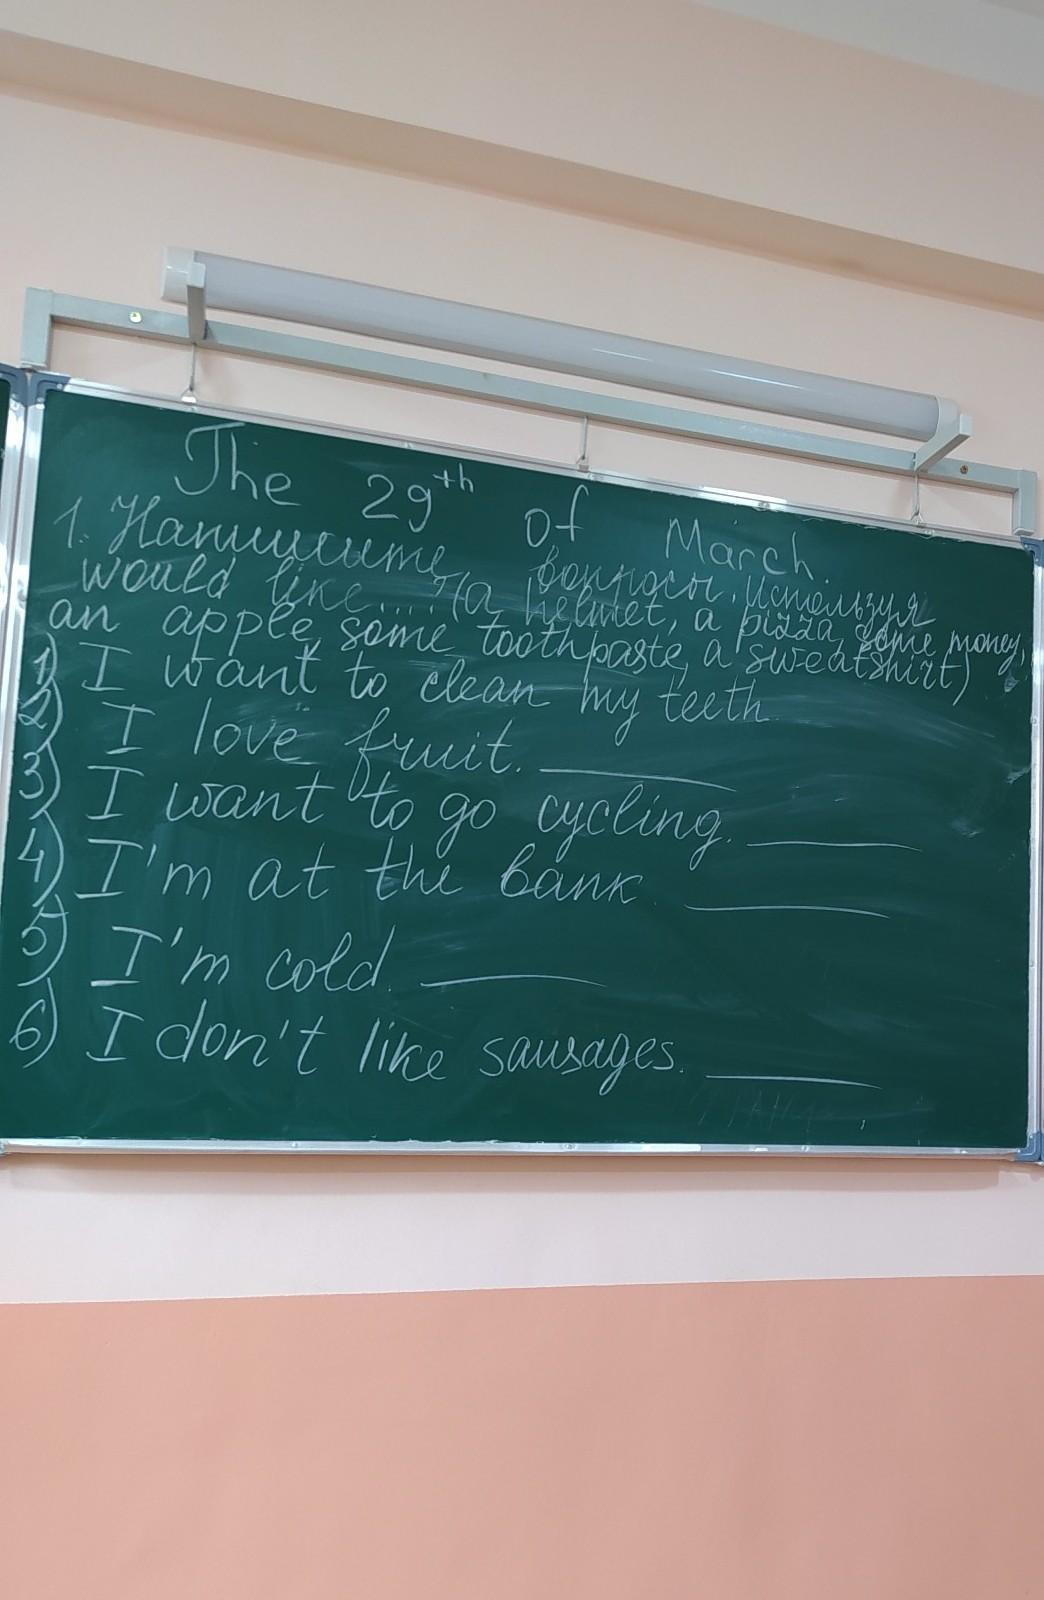 The 29th of March.
1. Напишите вопросы. Используя
would like....? (a helmet, a pizza, some money,
an apple, some toothpaste, a sweatshirt)
1) I want to clean my teeth
2) I love fruit. ______
3) I want to go cycling. ______
4) I'm at the bank. ______
5) I'm cold. ______
6) I don't like sausages. ______